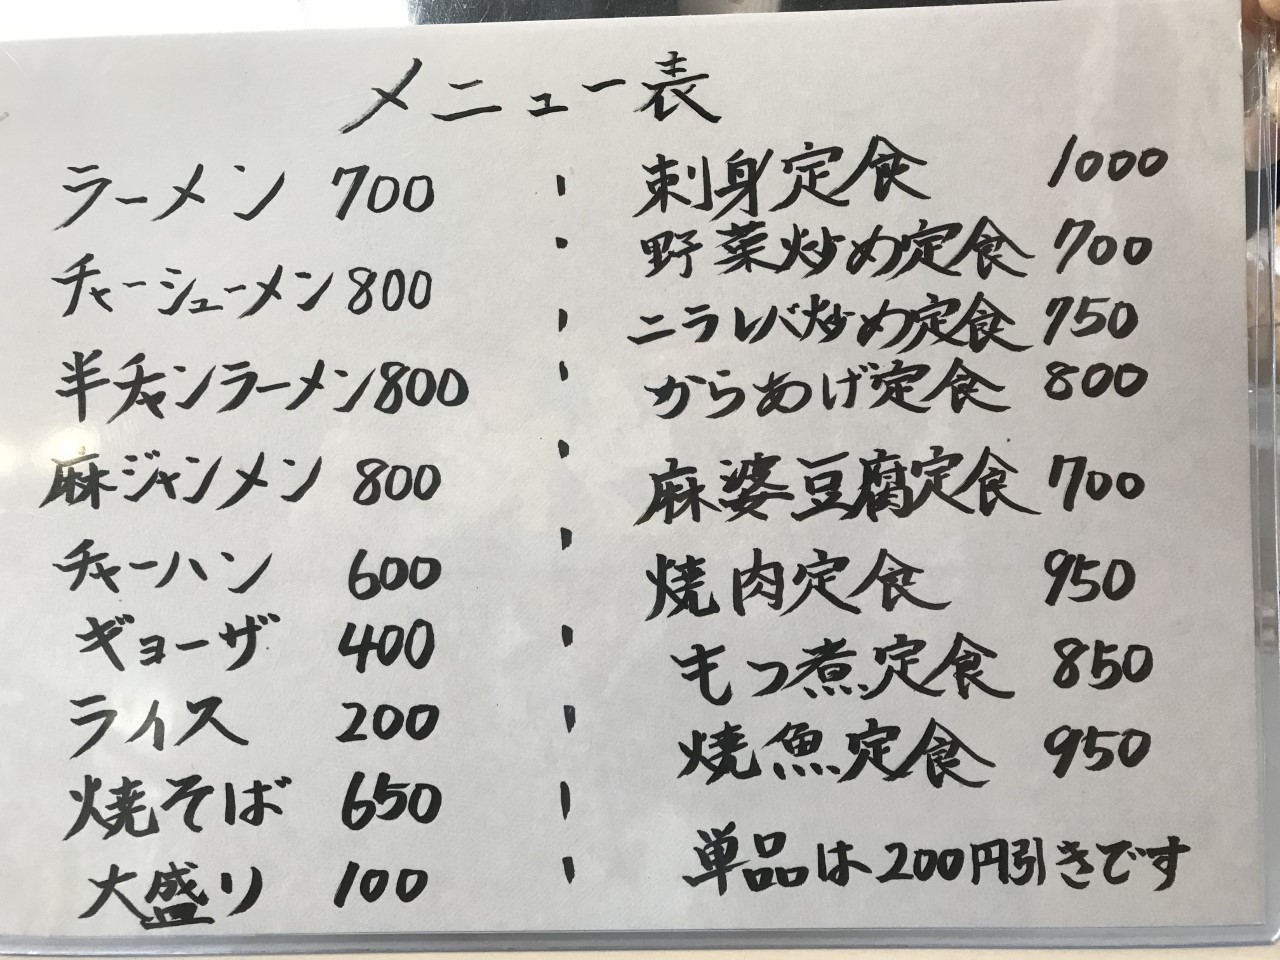 メニュー表
ラーメン 700
チャーシューメン 800
半チャンラーメン 800
麻ジャンメン 800
チャーハン 600
ギョーザ 400
ライス 200
焼そば 650
大盛り 100
刺身定食 1000
野菜炒め定食 700
ニラレバ炒め定食 750
からあげ定食 800
麻婆豆腐定食 700
焼肉定食 950
もつ煮定食 850
焼魚定食 950
単品は200円引きです